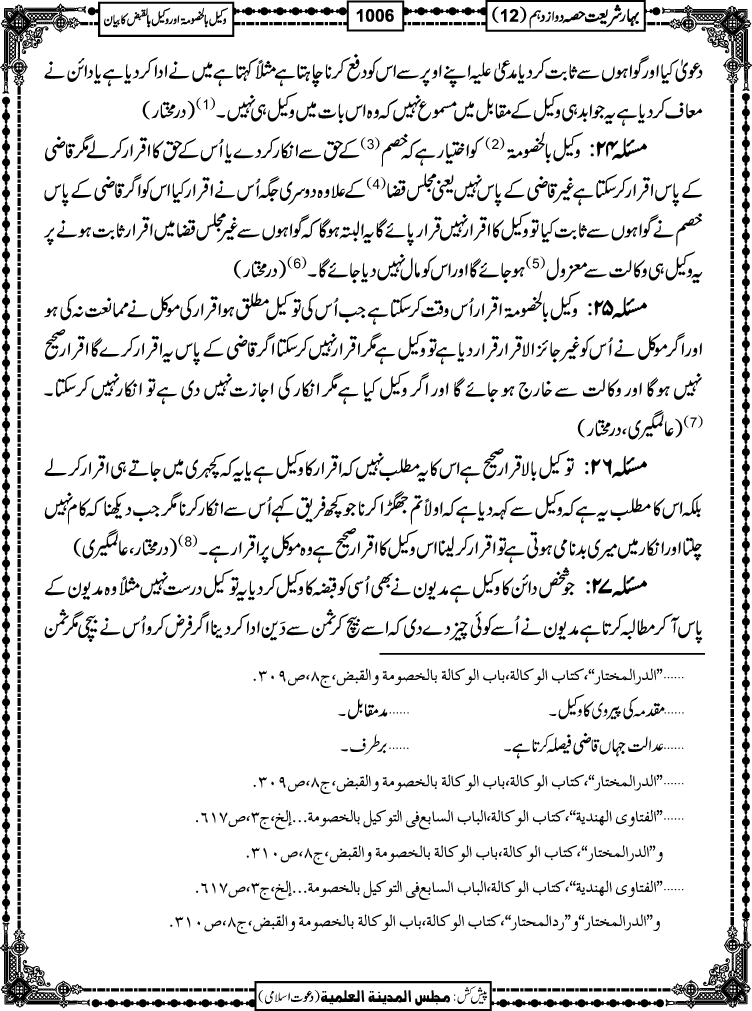 بہارِ شریعت حصہ دوازدہم (12)
1006
وکیل بالخصومۃ اور وکیل بالقبض کا بیان
دعویٰ کیا اور گواہوں سے ثابت کر دیا مدعیٰ علیہ اپنے اوپر سے اس کو دفع کرنا چاہتا ہے مثلاً کہتا ہے میں نے ادا کر دیا ہے یا دائن نے
معاف کر دیا ہے یہ جوابدہی وکیل کے مقابل میں مسموع نہیں کہ وہ اس بات میں وکیل ہی نہیں۔(1) (درمختار)
مسئلہ ۲۴: وکیل بالخصومۃ (2) کو اختیار ہے کہ خصم (3) کے حق سے انکار کر دے یا اُس کے حق کا اقرار کر لے مگر قاضی
کے پاس اقرار کر سکتا ہے غیر قاضی کے پاس نہیں یعنی مجلس قضا (4) کے علاوہ دوسری جگہ اُس نے اقرار کیا اس کو اگر قاضی کے پاس
خصم نے گواہوں سے ثابت کیا تو وکیل کا اقرار نہیں قرار پائے گا یہ البتہ ہوگا کہ گواہوں سے غیر مجلس قضا میں اقرار ثابت ہونے پر
یہ وکیل ہی وکالت سے معزول (5) ہو جائے گا اور اس کو مال نہیں دیا جائے گا۔(6) (درمختار)
مسئلہ ۲۵: وکیل بالخصومۃ اقرار اُس وقت کر سکتا ہے جب اُس کی توکیل مطلق ہو اقرار کی موکل نے ممانعت نہ کی ہو
اور اگر موکل نے اُس کو غیر جائز الاقرار قرار دیا ہے تو وکیل ہے مگر اقرار نہیں کر سکتا اگر قاضی کے پاس یہ اقرار کرے گا اقرار صحیح
نہیں ہوگا اور وکالت سے خارج ہو جائے گا اور اگر وکیل کیا ہے مگر انکار کی اجازت نہیں دی ہے تو انکار نہیں کر سکتا۔
(7) (عالمگیری، درمختار)
مسئلہ ۲۶: توکیل بالاقرار صحیح ہے اس کا یہ مطلب نہیں کہ اقرار کا وکیل ہے یا یہ کہ کچہری میں جاتے ہی اقرار کر لے
بلکہ اس کا مطلب یہ ہے کہ وکیل سے کہہ دیا ہے کہ اولاً تم جھگڑا کرنا جو کچھ فریق کہے اُس سے انکار کرنا مگر جب دیکھنا کہ کام نہیں
چلتا اور انکار میں میری بدنامی ہوتی ہے تو اقرار کر لینا اس وکیل کا اقرار صحیح ہے وہ موکل پر اقرار ہے۔(8) (درمختار، عالمگیری)
مسئلہ ۲۷: جو شخص دائن کا وکیل ہے مدیون نے بھی اُسی کو قبضہ کا وکیل کر دیا یہ توکیل درست نہیں مثلاً وہ مدیون کے
پاس آکر مطالبہ کرتا ہے مدیون نے اُسے کوئی چیز دے دی کہ اسے بیچ کر ثمن سے دَین ادا کر دینا اگر فرض کرو اُس نے بیچی مگر ثمن
......”الدرالمختار“، کتاب الوکالة، باب الوکالة بالخصومة والقبض، ج۸، ص۳۰۹.
......مقدمہ کی پیروی کا وکیل۔ ......مدمقابل۔
......عدالت جہاں قاضی فیصلہ کرتا ہے۔ ......برطرف۔
......”الدرالمختار“، کتاب الوکالة، باب الوکالة بالخصومة والقبض، ج۸، ص۳۰۹.
......”الفتاوی الهندية“، کتاب الوکالة، الباب السابع فی التوکیل بالخصومة...إلخ، ج۳، ص۶۱۷.
و”الدرالمختار“، کتاب الوکالة، باب الوکالة بالخصومة والقبض، ج۸، ص۳۱۰.
......”الفتاوی الهندية“، کتاب الوکالة، الباب السابع فی التوکیل بالخصومة...إلخ، ج۳، ص۶۱۷.
و”الدرالمختار“و”ردالمحتار“، کتاب الوکالة، باب الوکالة بالخصومة والقبض، ج۸، ص۳۱۰.
پیش کش: مجلس المدينة العلمية (دعوت اسلامی)